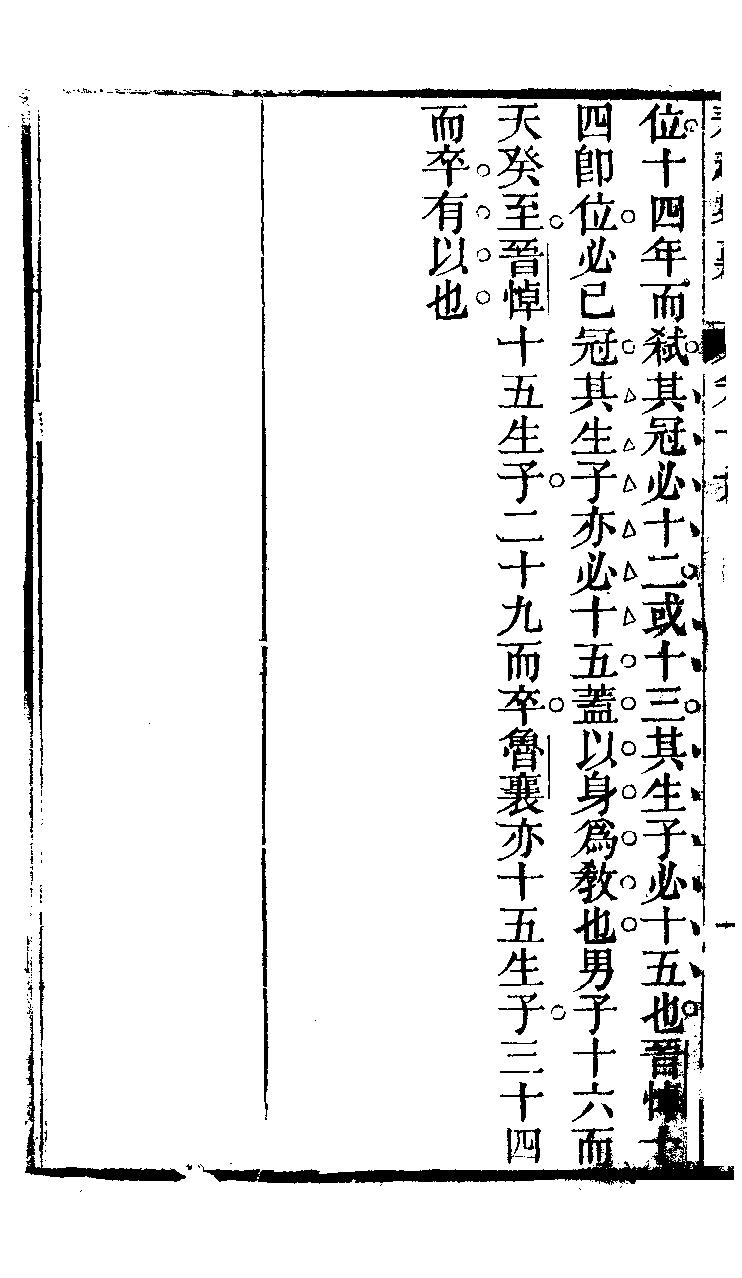 位十四年而弑其冠必十二或十三其生子必十五也晉悼十
四卽位必已冠其生子亦必十五蓋以身爲敎也男子十六而
天癸至晉悼十五生子二十九而卒魯襄亦十五生子三十四
而卒有以也